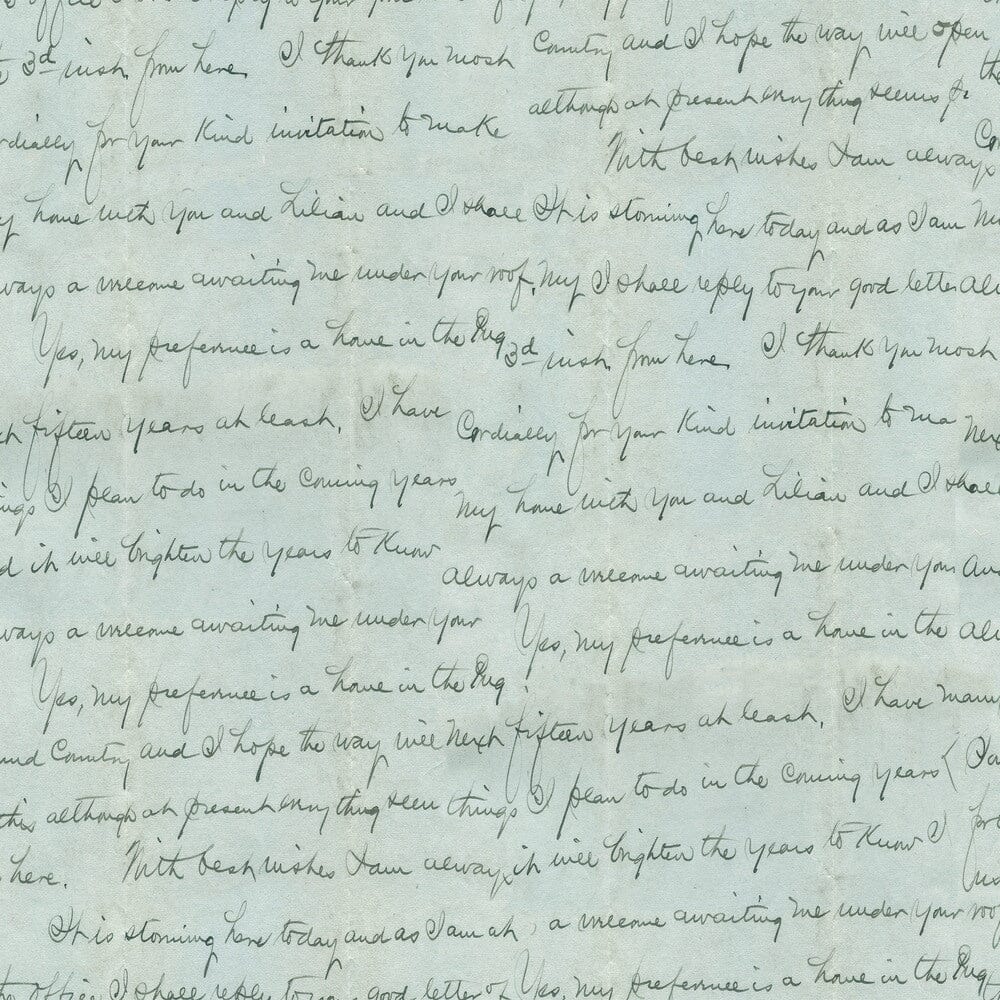 3rd inst from here I thank you most Country and I hope the way will open
cordially for your Kind invitation to make although at present everything seems
With best wishes I am always
home with you and Lilian and I shall It is storming here today and as I am
always a welcome awaiting me under your roof. My I shall reply to your good letter
Yes, my preference is a home in the Eng 3rd inst from here I thank you most
fifteen years at least, I have Cordially for your Kind invitation to ma Next
things I plan to do in the coming years my home with you and Lilian and I shall
it will brighten the years to Know always a welcome awaiting me under your
always a welcome awaiting me under your Yes, my preference is a home in the
Yes, my preference is a home in the Eng I have many
and Country and I hope the way will Next fifteen years at least,
this although at present everything seem things I plan to do in the coming years
here. With best wishes I am always it will brighten the years to Know I
It is storming here today and as I am at a welcome awaiting me under your roof
office I shall reply to your good letter of Yes, my preference is a home in the Eng